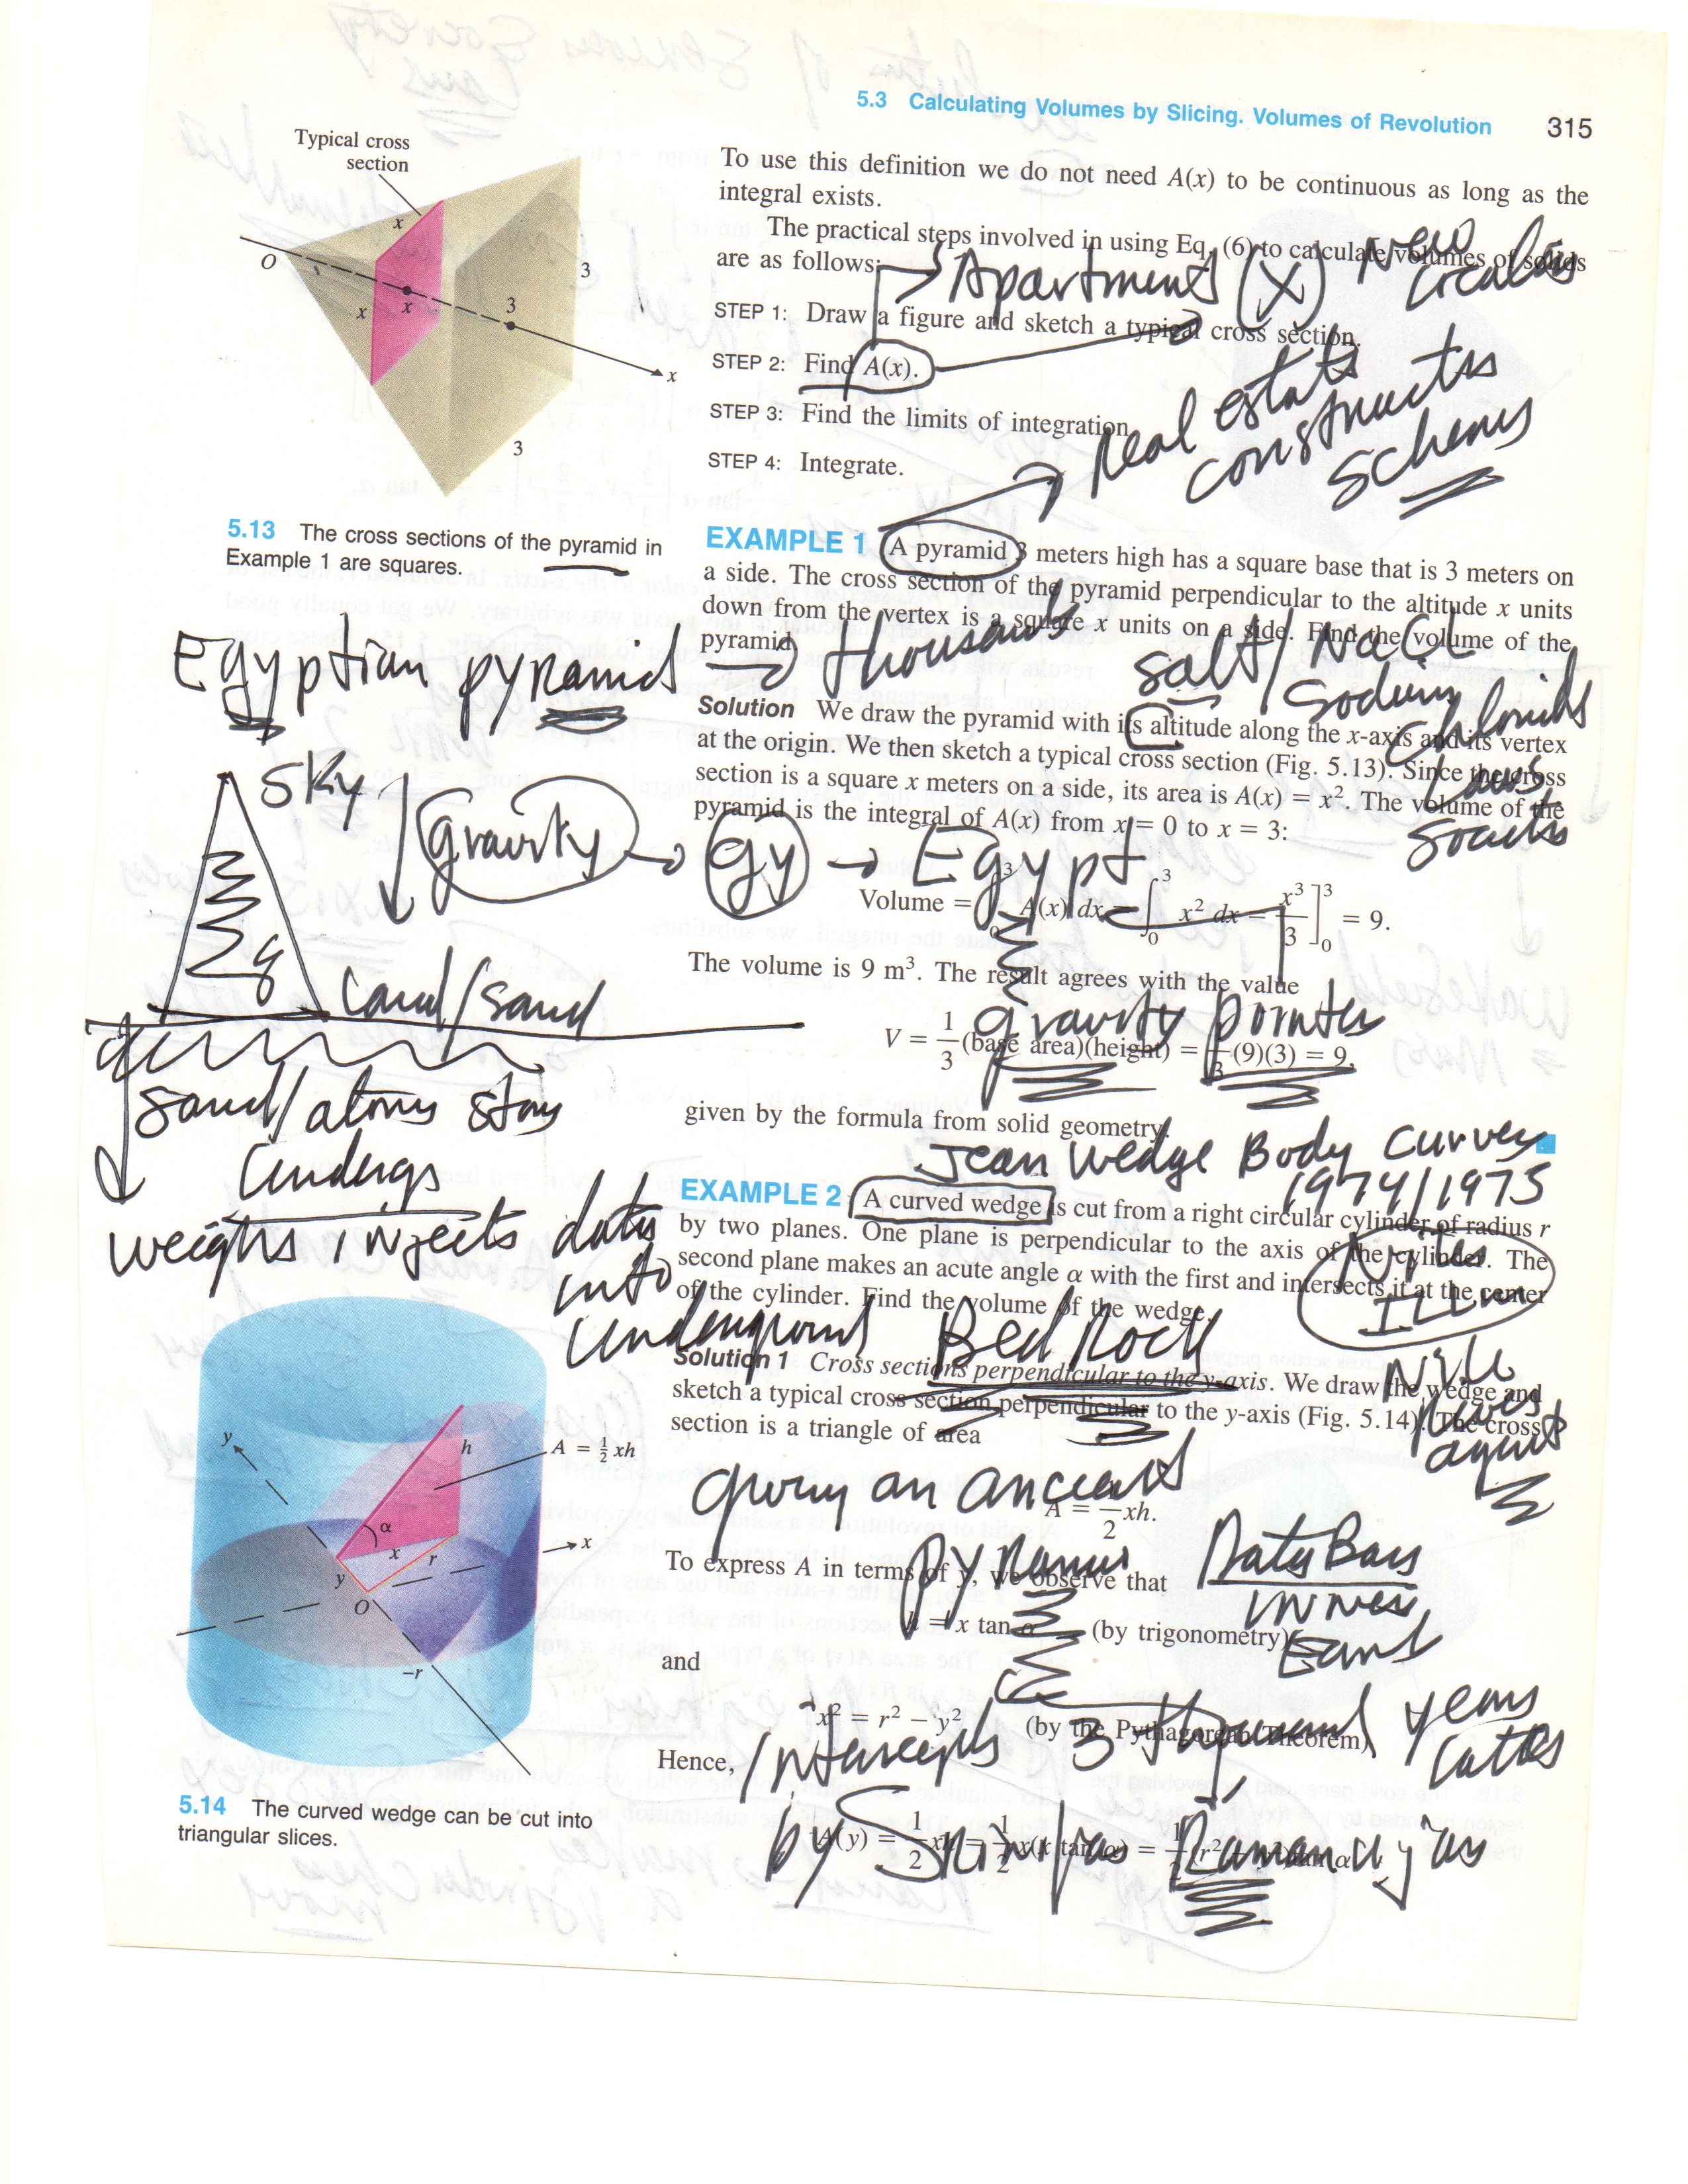 5.3 Calculating Volumes by Slicing. Volumes of Revolution 315
Typical cross
section
x
O
x
x
3
3
3
x
5.13 The cross sections of the pyramid in
Example 1 are squares.
Egyptian pyramid → thousands
sky
gravity → gy → Egypt
g
land/sand
sand/atoms stay
weights injects data
into
underground Bed Rock
y
h
A = ½ xh
α
x
r
x
y
O
−r
5.14 The curved wedge can be cut into
triangular slices.
To use this definition we do not need A(x) to be continuous as long as the
integral exists.
The practical steps involved in using Eq. (6) to calculate volumes of solids
are as follows:
Apartments (x) New
STEP 1: Draw a figure and sketch a typical cross section.
STEP 2: Find A(x).
STEP 3: Find the limits of integration.
STEP 4: Integrate.
Real estate
schemes
EXAMPLE 1 A pyramid 3 meters high has a square base that is 3 meters on
a side. The cross section of the pyramid perpendicular to the altitude x units
down from the vertex is a square x units on a side. Find the volume of the
pyramid.
salt/NaCl
Sodium
Chloride
Laws
Solution We draw the pyramid with its altitude along the x-axis and its vertex
at the origin. We then sketch a typical cross section (Fig. 5.13). Since the cross
section is a square x meters on a side, its area is A(x) = x². The volume of the
pyramid is the integral of A(x) from x = 0 to x = 3:
Volume = ∫₀³ A(x) dx = ∫₀³ x² dx = x³/3 ]₀³ = 9.
The volume is 9 m³. The result agrees with the value
gravity pointer
V = 1/3 (base area)(height) = 1/3 (9)(3) = 9,
given by the formula from solid geometry.
Jean Wedge Body Curves
1974/1975
EXAMPLE 2 A curved wedge is cut from a right circular cylinder of radius r
by two planes. One plane is perpendicular to the axis of the cylinder. The
second plane makes an acute angle α with the first and intersects it at the center
of the cylinder. Find the volume of the wedge.
Niles
Niles
news
agent
Solution 1 Cross sections perpendicular to the y-axis. We draw the wedge and
sketch a typical cross section perpendicular to the y-axis (Fig. 5.14). The cross
section is a triangle of area
an ancient
A = 1/2 xh.
Data Base
Earth
To express A in terms of y, we observe that
h = x tan α (by trigonometry)
and
x² = r² − y² (by the Pythagorean Theorem)
3 thousand years
Hence,
by Srinivas Ramanuj
A(y) = 1/2 xh = 1/2 x(x tan α) = 1/2 (r² − y²) tan α